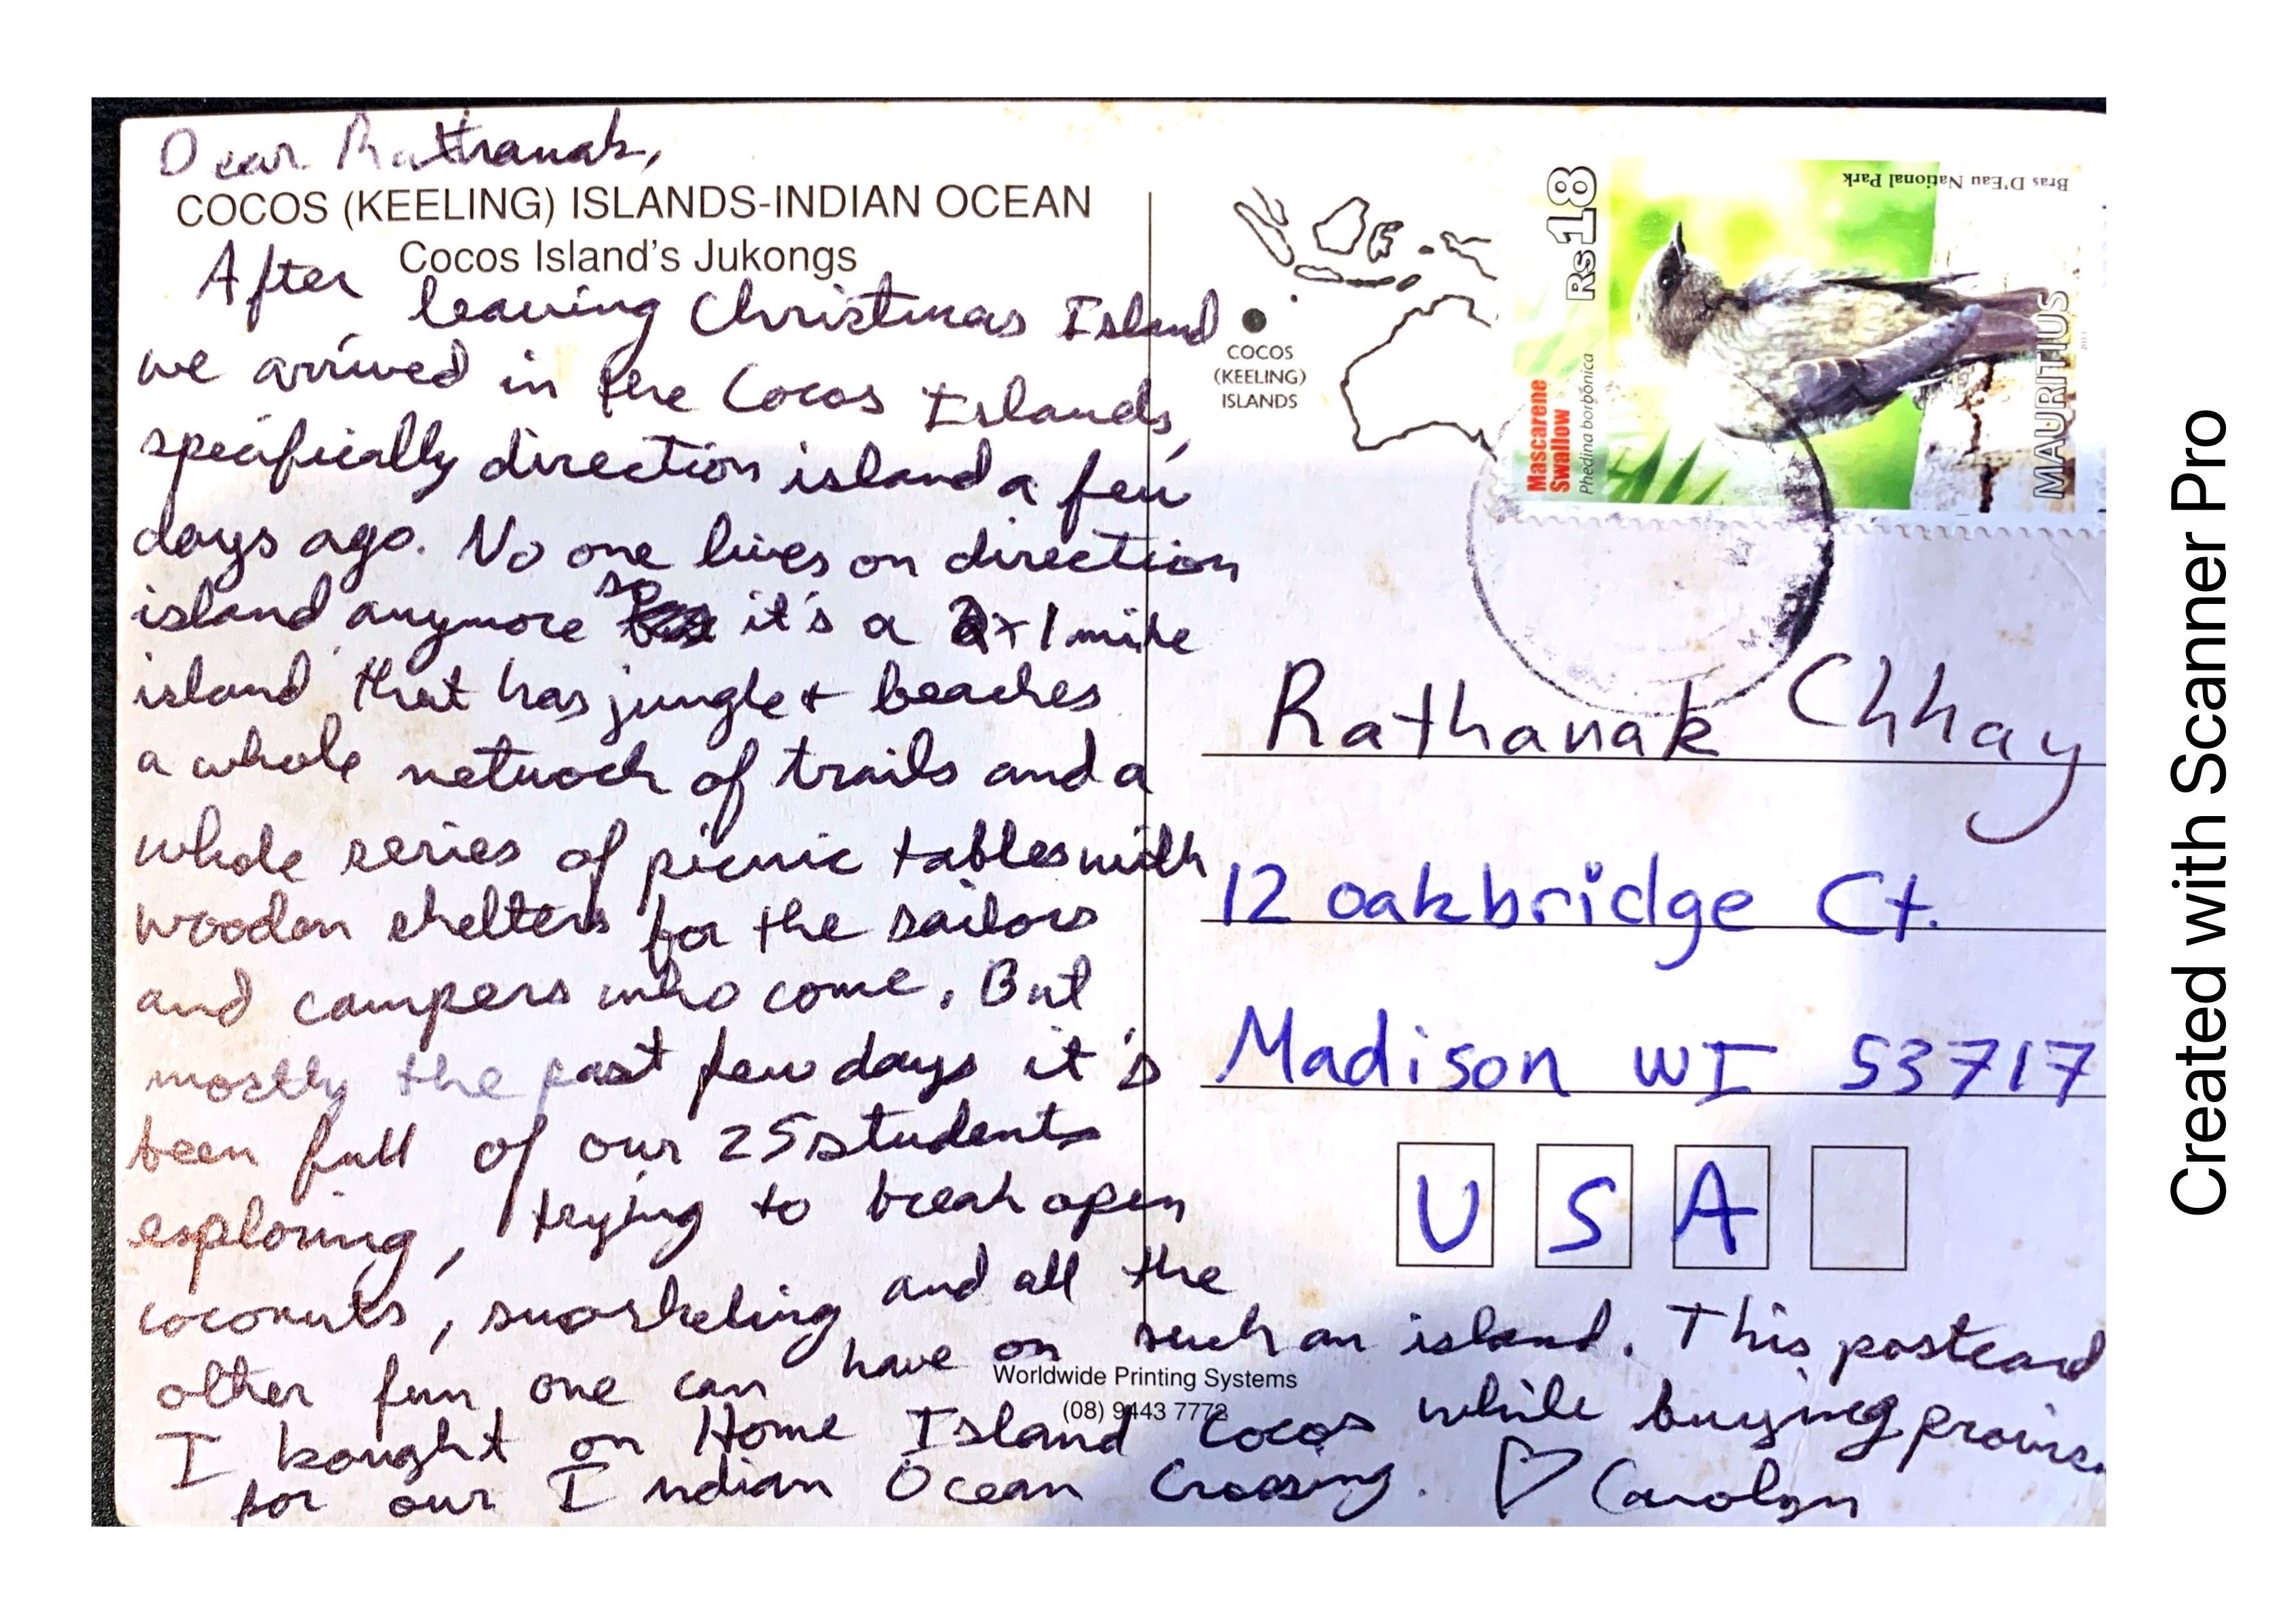 Dear Rathanak,
COCOS (KEELING) ISLANDS-INDIAN OCEAN
Cocos Island's Jukongs
After leaving Christmas Island
we arrived in the Cocos Islands,
specifically direction island a few
days ago. No one lives on direction
island anymore so it's a 2x1 mile
island that has jungle + beaches
a whole network of trails and a
whole series of picnic tables with
wooden shelters for the sailors
and campers who come. But
mostly the past few days it's
been full of our 25 students
exploring, trying to break open
coconuts, snorkeling and all the
other fun one can have on such an island. This postcard
I bought on Home Island Cocos while buying provis.
for our Indian Ocean Crossing. ♡ Carolyn
Worldwide Printing Systems
(08) 9443 7772
COCOS
(KEELING)
ISLANDS
Rs18
Mascarene
Swallow
Phedina borbonica
Bras D'Eau National Park
MAURITIUS
Rathanak Chhay
12 oakbridge Ct.
Madison WI 53717
USA
Created with Scanner Pro